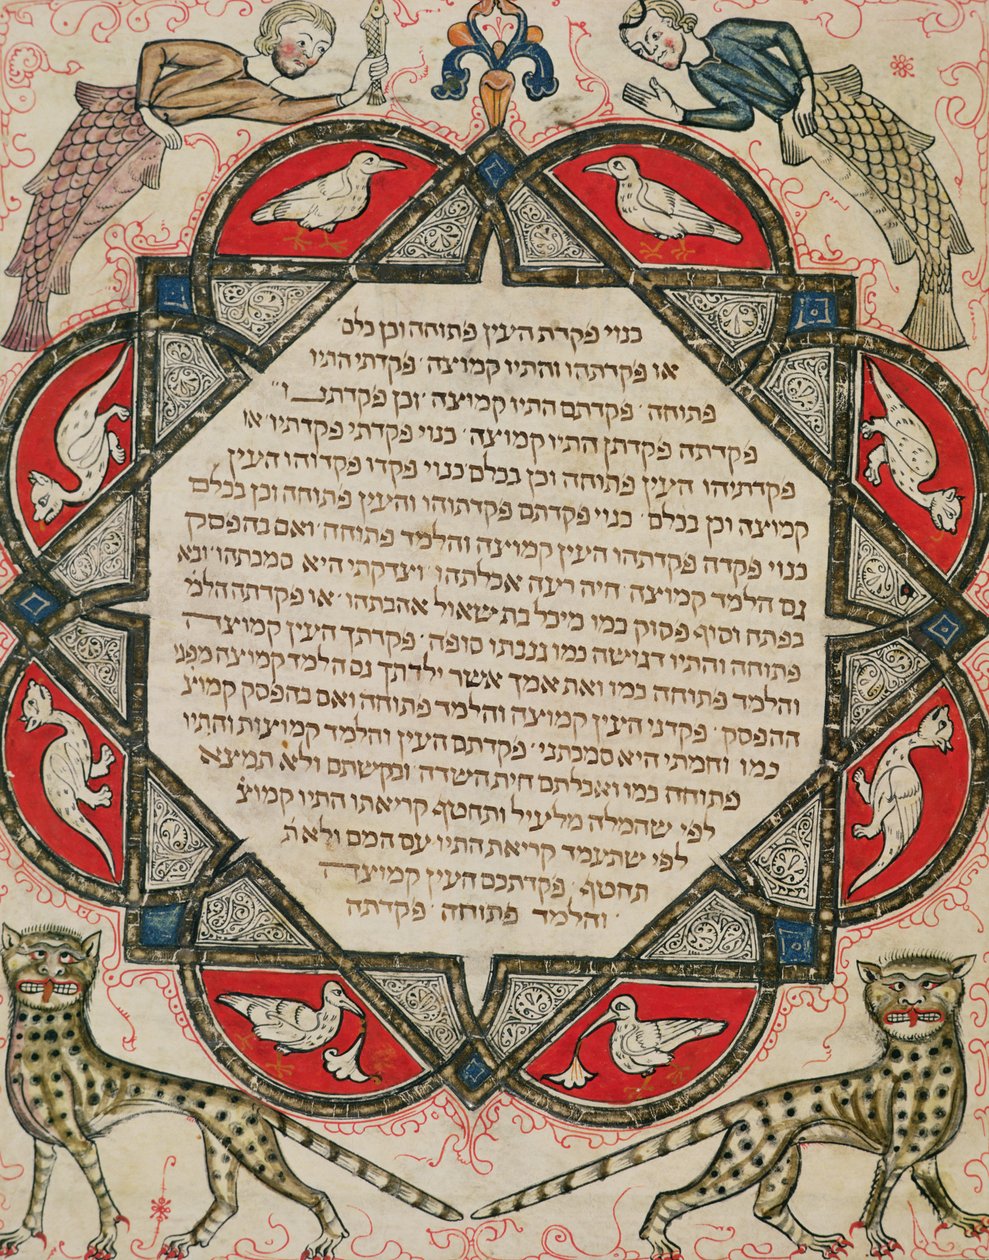 כנוי פקדת העין פתוחה וכן כלם׳
או פקדתהו והתיו קמוצה׳ פקדתי התיו
פתוחה׳ פקדתם התיו קמוצה׳ וכן פקדתנו
פקדתה פקדתן התיו קמוצה׳ כנוי פקדתי פקדתיו או
פקדתיהו העין פתוחה וכן בכלם כנוי פקדו פקדוהו העין
קמוצה וכן בכלם׳ כנוי פקדתם פקדתוהו והעין פתוחה וכן בכלם
כנוי פקדה פקדתהו העין קמוצה והלמד פתוחה׳ ואם בהפסק
גם הלמד קמוצה׳ חיה רעה אכלתהו׳ וצדקתי היא סמכתהו׳ ובא
בפתח וסוף פסוק כמו מיכל בת שאול אהבתהו׳ או פקדתה הלמ
פתוחה והתיו דגושה כמו גנבתו סופה׳ פקדתך העין קמוצה
והלמד פתוחה כמו ואת אמך אשר ילדתך גם הלמד קמוצה מפני
ההפסק׳ פקדני העין קמוצה והלמד פתוחה ואם בהפסק קמוצ
כמו וחמתי היא סמכתני׳ פקדתם העין והלמד קמוצות והתיו
פתוחה כמו ואכלתם חית השדה ובקשתם ולא תמיצא
לפי שהמלה מלעיל ותחטף קריאתו התיו קמוצ
לפי שתעמד קריאת התיו עם המם ולא ת
תחטף׳ פקדתכם העין קמוצה
והלמד פתוחה׳ פקדתה